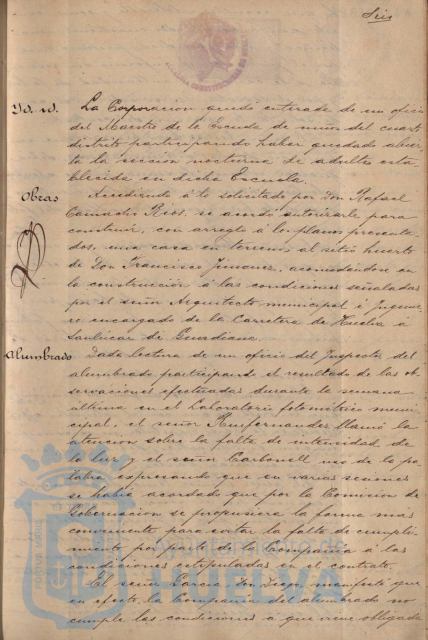 Seis
Yd. id. La Corporacion quedó enterada de un oficio
del Maestro de la Escuela de niños del cuarto
distrito participando haber quedado abier-
ta la seccion nocturna de adultos esta
blecida en dicha Escuela.
Obras Accediendo á lo solicitado por Don Rafael
Camacho Rios, se acordó autorizarle para
construir, con arreglo á los planos presenta-
dos, una casa en terreno, al sitio huerto
de Don Francisco Jimenez, acomodándose en
la construccion á las condiciones señaladas
por el señor Arquitecto municipal é Ingenie-
ro encargado de la Carretera de Huelva á
Sanlúcar de Guadiana.
Alumbrado Dada lectura de un oficio del Inspector del
alumbrado participando el resultado de las ob-
servaciones efectuadas durante la semana
última en el Laboratorio fotométrico muni-
cipal, el señor llamó la
atencion sobre la falta de intensidad de
la luz y el señor Carbonell usó de la pa-
labra expresando que en varias sesiones
se habia acordado que por la Comision de
Gobernacion se propusiera la forma mas
conveniente para evitar la falta de cumpli-
miento por parte de la Compañia á las
condiciones estipuladas en el contrato.
El señor Garcia Don Diego manifestó que
en efecto la Compañia del alumbrado no
cumple las condiciones á que viene obligada
Ayuntamiento de
HUELVA